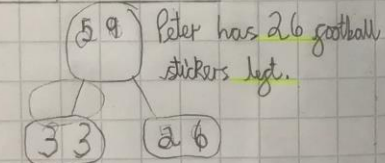 59
Peter has 26 football
stickers left.
33 26